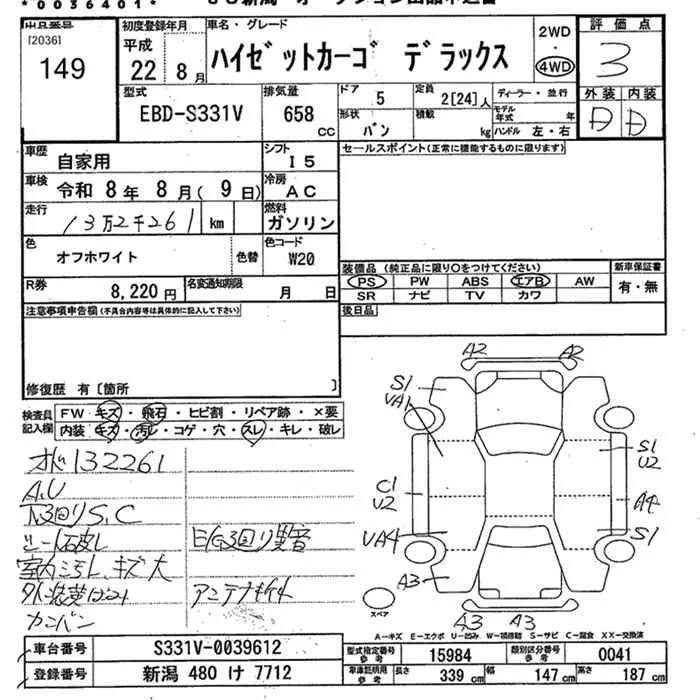 *0036401*
[20361
149
初度登録年月
平成
22年 8月
車名・グレード
ハイゼットカーゴ デラックス
2WD
・
4WD
評価点
3
外装 内装
D D
型式
EBD-S331V
排気量
658 CC
ドア 5
定員 2[24]人
形状 バン
積載 kg
ディーラー・並行
モデル年式 年
ハンドル 左・右
車歴 自家用
シフト I5
セールスポイント(正常に機能するものに限ります)
車検 令和 8年 8月( 9日)
冷房 AC
走行 13万2千261 km
燃料 ガソリン
色 オフホワイト 色替
色コード W20
装備品(純正品に限り○をつけてください)
新車保証書
PS PW ABS エアB AW
有・無
SR ナビ TV カワ
R券 8,220円
名変通知期限 月 日
後日品
注意事項申告欄(不具合内容等は具体的に記入して下さい)
修復歴 有〔箇所 〕
検査員記入欄
FW キズ・飛石・ヒビ割・リペア跡・×要
内装 キズ・汚レ・コゲ・穴・スレ・キレ・破レ
オド132261
A,U
下回りS,C
シート破レ
E/G回り異音
室内汚レ、キズ大
アンテナ
カンバン
A2 A2
S1
VA1
S1
U2
C1
U2
A4
VA4
S1
A3
A3 A3
スペア
A-キズ E-エクボ U-凹み W-補修跡 S-サビ C-腐食 XX-交換済
車台番号 S331V-0039612
型式指定番号 参考 15984
類別区分番号 参考 0041
登録番号 新潟 480 け 7712
車庫証明用 参考
長さ 339 cm
幅 147 cm
高さ 187 cm